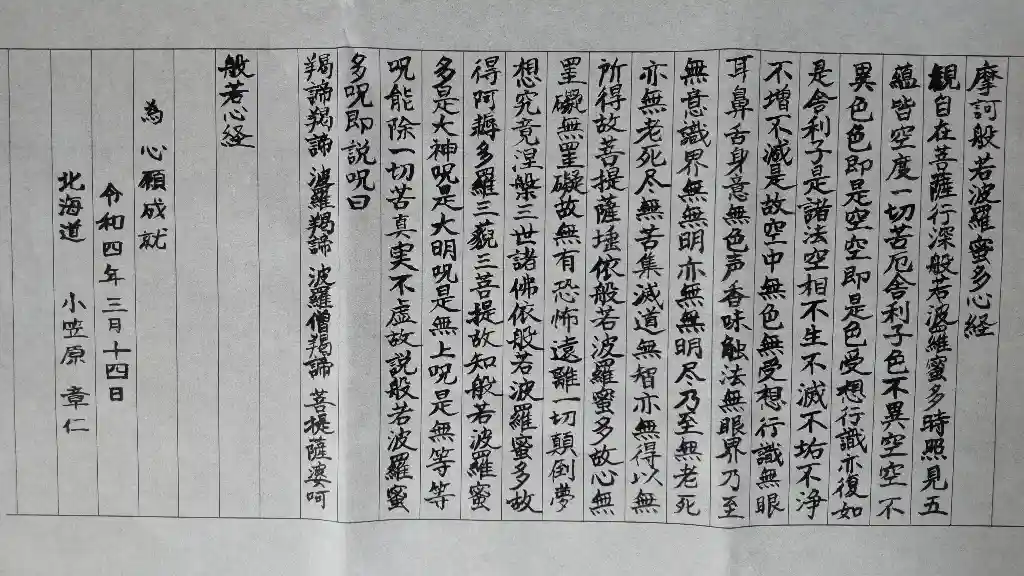 摩訶般若波羅蜜多心経
観自在菩薩行深般若波羅蜜多時照見五
蘊皆空度一切苦厄舎利子色不異空空不
異色色即是空空即是色受想行識亦復如
是舎利子是諸法空相不生不滅不垢不浄
不増不減是故空中無色無受想行識無眼
耳鼻舌身意無色声香味触法無眼界乃至
無意識界無無明亦無無明尽乃至無老死
亦無老死尽無苦集滅道無智亦無得以無
所得故菩提薩埵依般若波羅蜜多故心無
罣礙無罣礙故無有恐怖遠離一切顛倒夢
想究竟涅槃三世諸佛依般若波羅蜜多故
得阿耨多羅三藐三菩提故知般若波羅蜜
多是大神呪是大明呪是無上呪是無等等
呪能除一切苦真実不虚故説般若波羅蜜
多呪即説呪曰
羯諦羯諦 波羅羯諦 波羅僧羯諦 菩提薩婆呵
般若心経
為 心願成就
令和四年三月十四日
北海道 小笠原 章仁